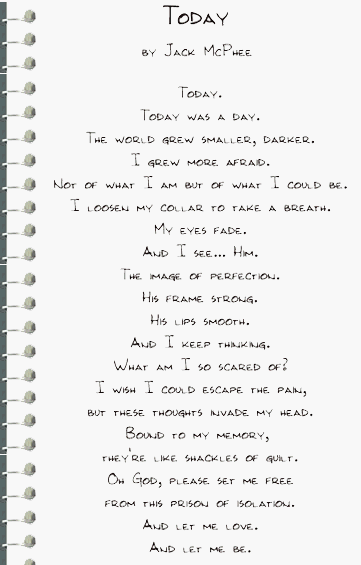 Today
by Jack McPhee
Today.
Today was a day.
The world grew smaller, darker.
I grew more afraid.
Not of what I am but of what I could be.
I loosen my collar to take a breath.
My eyes fade.
And I see... Him.
The image of perfection.
His frame strong.
His lips smooth.
And I keep thinking.
What am I so scared of?
I wish I could escape the pain,
but these thoughts invade my head.
Bound to my memory,
they're like shackles of guilt.
Oh God, please set me free
from this prison of isolation.
And let me love.
And let me be.